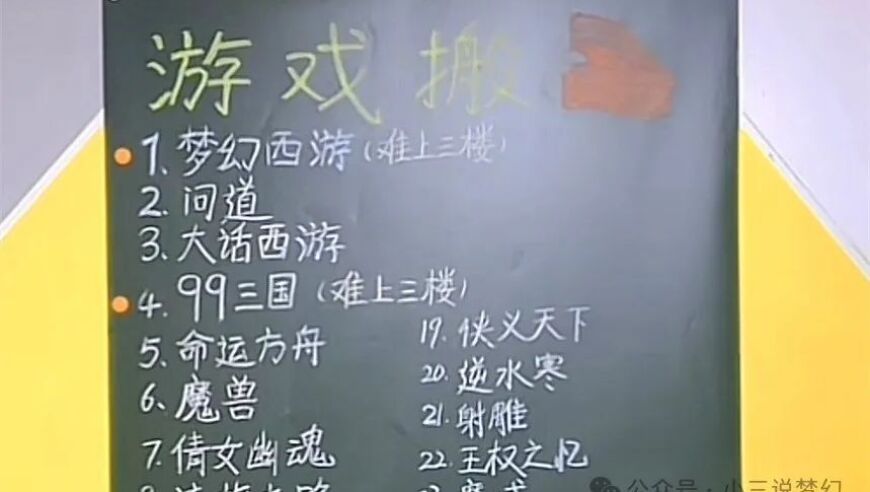 游戏搬
1、梦幻西游（难上三楼）
2、问道
3、大话西游
4、99三国（难上三楼）
5、命运方舟
6、魔兽
7、倩女幽魂
19、侠义天下
20、逆水寒
21、射雕
22、王权之忆
公众号·小三说梦幻